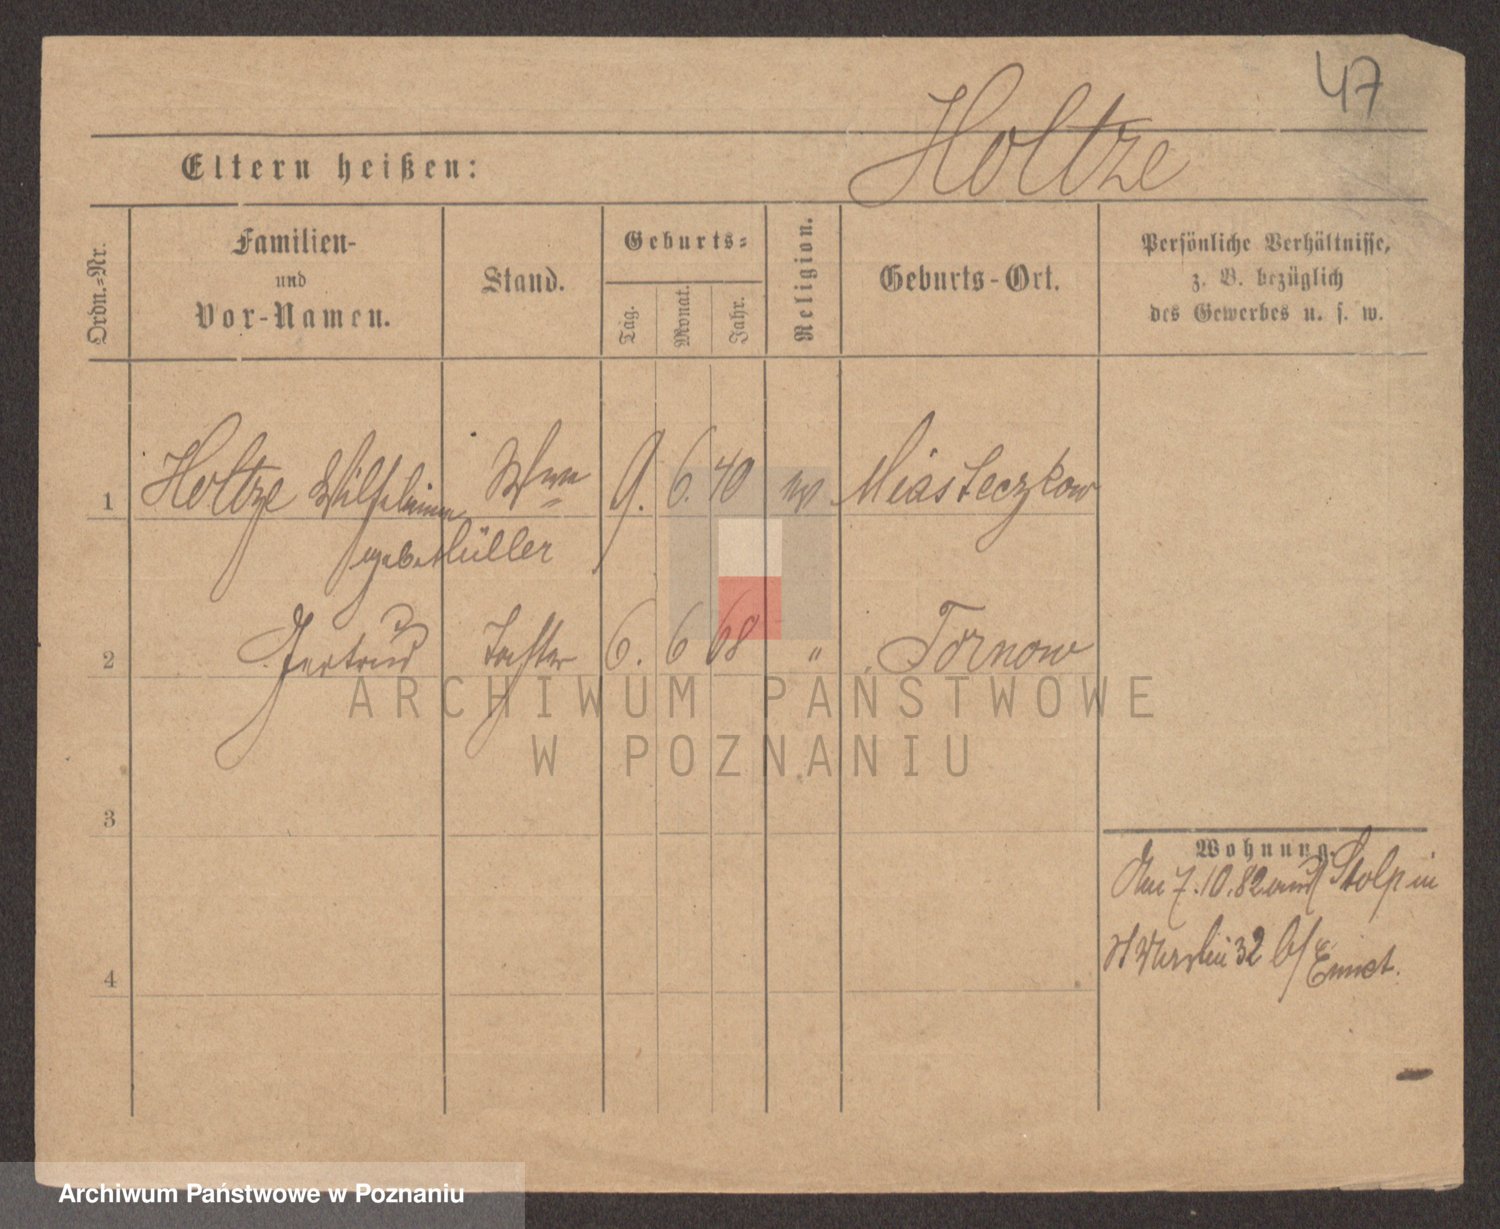 47
Holtze
Eltern heißen:
Ordn.-Nr.
Familien-
und
Vor-Namen.
Stand.
Geburts-
Tag.
Monat.
Jahr.
Religion.
Geburts-Ort.
Persönliche Verhältnisse,
z. B. bezüglich
des Gewerbes u. s. w.
1 Holtze Wilhelmine Wwe 9. 6. 40 ev Miasteczkow
geb. Müller
2 Gertrud Tochter 6. 6 68 " Tornow
ARCHIWUM PAŃSTWOWE
W POZNANIU
3
Wohnung.
Am 7.10.82 aus Stolp in
32 b/
4
Archiwum Państwowe w Poznaniu